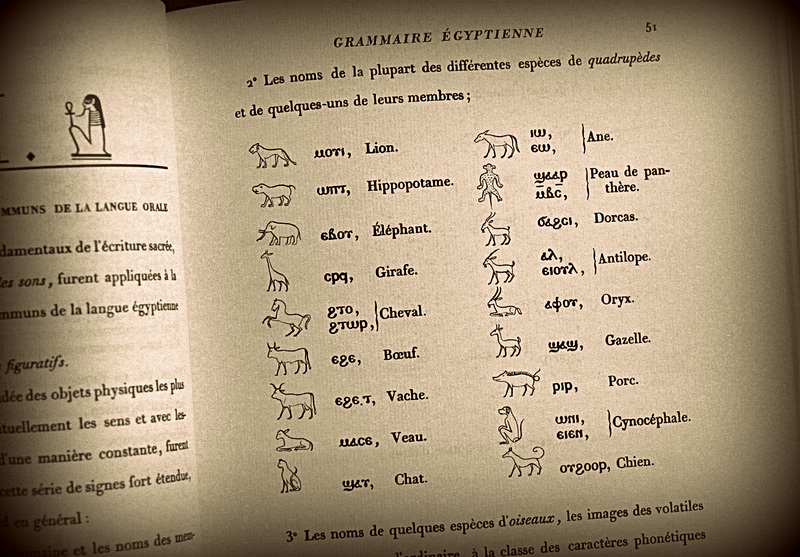 MMUNS DE LA LANGUE ORALE
damentaux de l'écriture sacrée,
les sons, furent appliquées à la
mmuns de la langue égyptienne
figuratifs.
dée des objets physiques les plus
ituellement les sens et avec les-
d'une manière constante, furent
cette série de signes fort étendue,
d en général :
maine et les noms des mem-
GRAMMAIRE ÉGYPTIENNE 51
2° Les noms de la plupart des différentes espèces de quadrupèdes
et de quelques-uns de leurs membres ;
ⲙⲟⲩⲓ, Lion.
Hippopotame.
ⲉⲃⲟⲩ, Éléphant.
ⲥⲣϥ, Girafe.
ϩⲧⲟ,
ϩⲧⲱⲣ, Cheval.
ⲉϩⲉ, Bœuf.
ⲉϩⲉ.ⲧ, Vache.
ⲙⲁⲥⲉ, Veau.
ϣⲁⲩ, Chat.
ⲓⲱ,
ⲉⲱ, Ane.
Peau de pan-
thère.
ϭⲁϩⲥⲓ, Dorcas.
ⲁⲗ,
ⲉⲓⲟⲩⲗ, Antilope.
Oryx.
ϣⲁϣ, Gazelle.
ⲣⲓⲣ, Porc.
ⲱⲛⲓ,
ⲉⲓⲉⲛ, Cynocéphale.
ⲟⲩϩⲟⲟⲣ, Chien.
3° Les noms de quelques espèces d'oiseaux, les images des volatiles
l'ordinaire, à la classe des caractères phonétiques